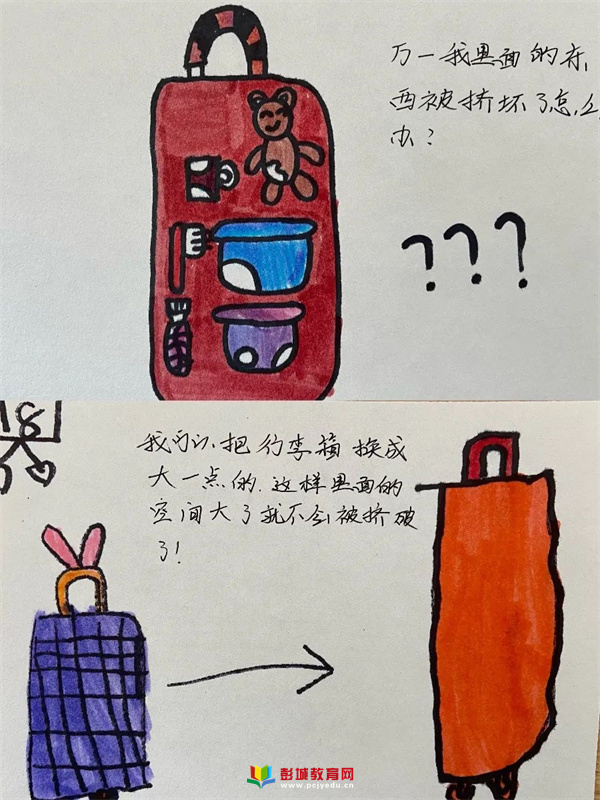 万一我里面的东
西被挤坏了怎么
办?
???
18
我可以把行李箱换成
大一点的.这样里面的
空间大了就不会被挤破
了!
彭城教育网
www.pcjyedu.cn